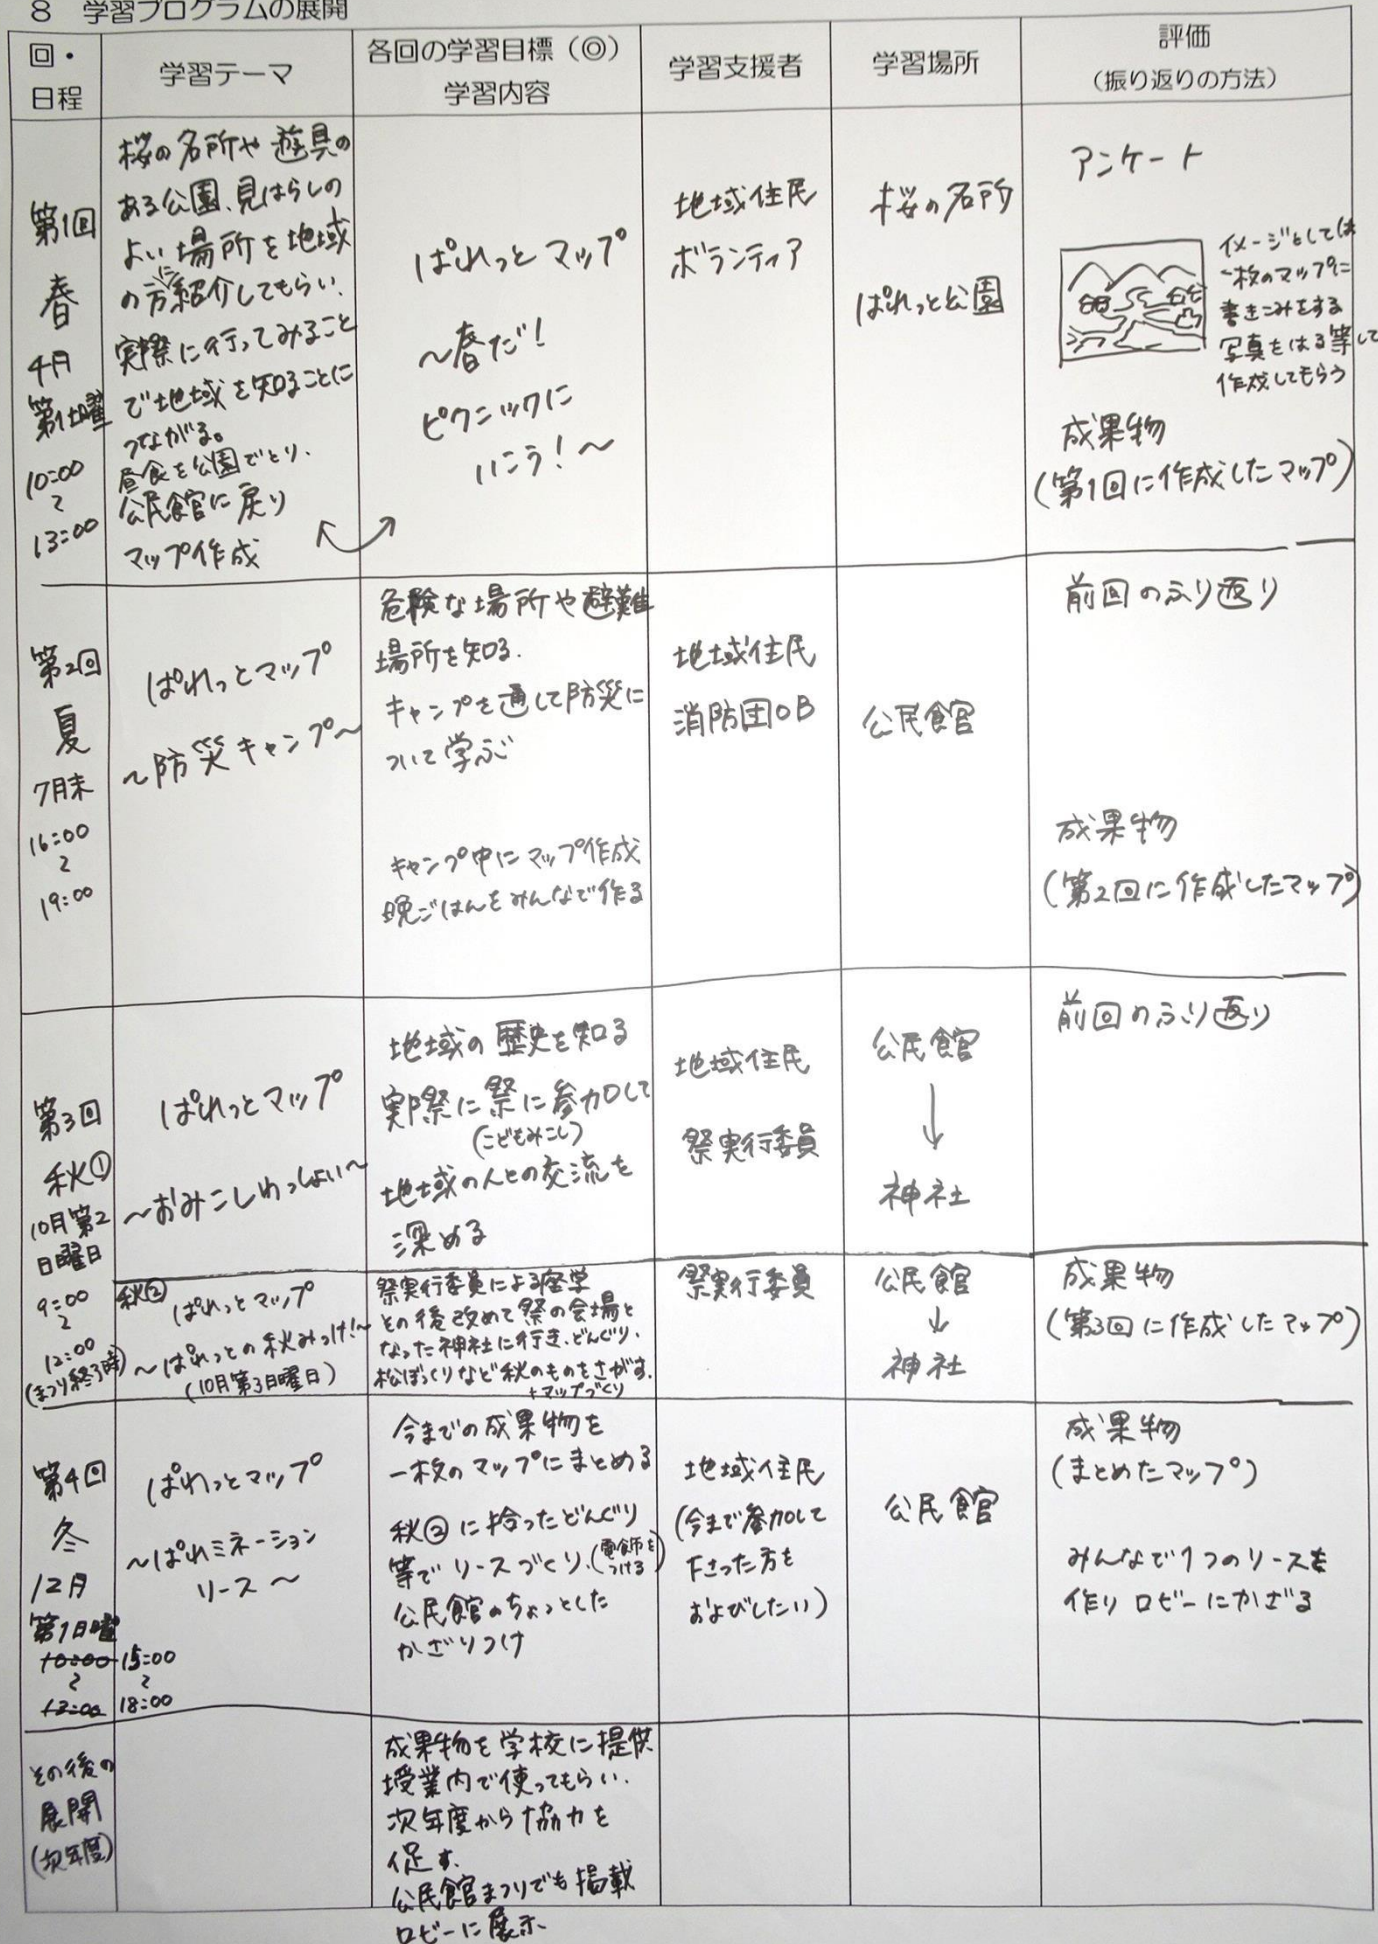 8　学習プログラムの展開
回・
日程
学習テーマ
各回の学習目標（◎）
学習内容
学習支援者
学習場所
評価
（振り返りの方法）
第1回
春
4月
第1土曜
10:00
～
13:00
桜の名所や遊具の
ある公園、見はらしの
よい場所を地域
の方に紹介してもらい、
実際に行ってみること
で地域を知ることに
つながる。
昼食を公園でとり、
公民館に戻り
マップ作成
ぱれっとマップ
～春だ！
ピクニックに
いこう！～
地域住民
ボランティア
桜の名所
ぱれっと公園
アンケート
イメージとしては
一枚のマップに
書きこみをする
写真をはる等して
作成してもらう
成果物
(第1回に作成したマップ)
第2回
夏
7月末
16:00
～
19:00
ぱれっとマップ
～防災キャンプ～
危険な場所や避難
場所を知る.
キャンプを通して防災に
ついて学ぶ
キャンプ中にマップ作成
晩ごはんをみんなで作る
地域住民
消防団OB
公民館
前回のふり返り
成果物
(第2回に作成したマップ)
第3回
秋①
10月第2
日曜日
9:00
～
12:00
(まつり終了時)
ぱれっとマップ
～おみこしわっしょい～
地域の歴史を知る
実際に祭に参加して
(こどもみこし)
地域の人との交流を
深める
地域住民
祭実行委員
公民館
↓
神社
前回のふり返り
秋②
ぱれっとマップ
～ぱれっとの秋みっけ！～
(10月第3日曜日)
祭実行委員による座学
その後改めて祭の会場と
なった神社に行き、どんぐり、
松ぼっくりなど秋のものをさがす.
+マップづくり
祭実行委員
公民館
↓
神社
成果物
(第3回に作成したマップ)
第4回
冬
12月
第1日曜
10:00 15:00
～ ～
12:00 18:00
ぱれっとマップ
～ぱれミネーション
リース～
今までの成果物を
一枚のマップにまとめる
秋②に拾ったどんぐり
等でリースづくり.(電飾を
つける)
公民館のちょっとした
かざりつけ
地域住民
(今まで参加して
下さった方を
およびしたい)
公民館
成果物
(まとめたマップ)
みんなで1つのリースを
作りロビーにかざる
その後の
展開
(次年度)
成果物を学校に提供
授業内で使ってもらい.
次年度から協力を
促す.
公民館まつりでも掲載
ロビーに展示.